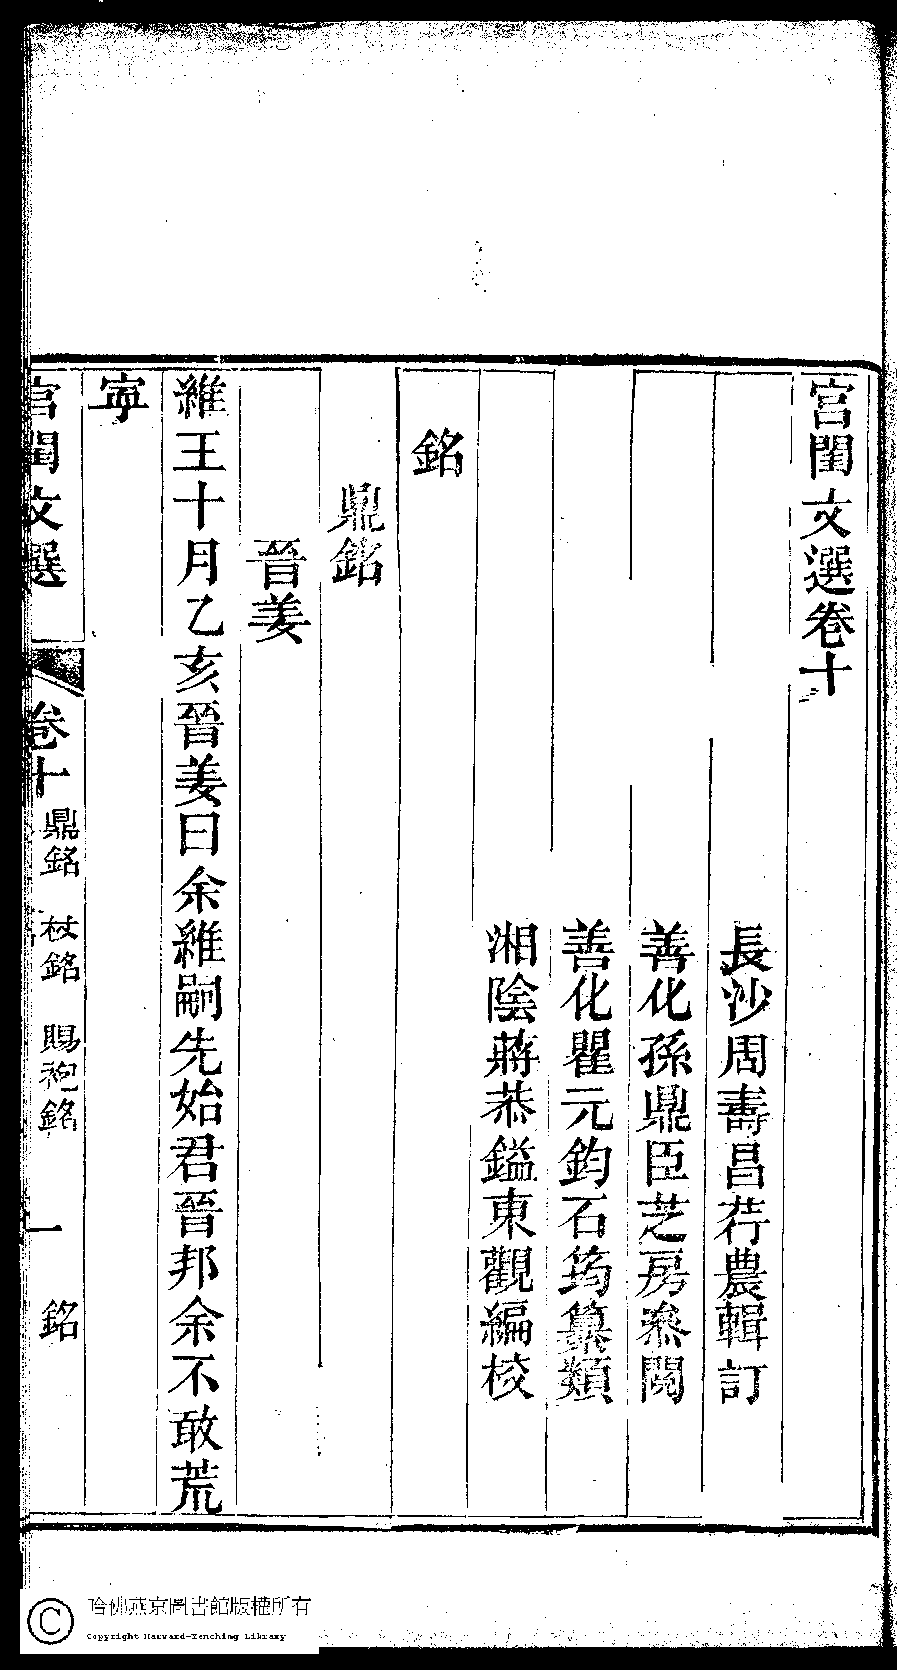 宮閨文選卷十
長沙周壽昌荇農輯訂
善化孫鼎臣芝房叅閱
善化瞿元鈞石筠纂類
湘陰蔣恭鎰東觀編校
銘
鼎銘
晉姜
維王十月乙亥晉姜曰余維嗣先始君晉邦余不敢荒
寧
宮閨文選
卷十
鼎銘 杖銘 賜袍銘
一
銘
哈佛燕京圖書館版權所有
Copyright Harvard-Yenching Library